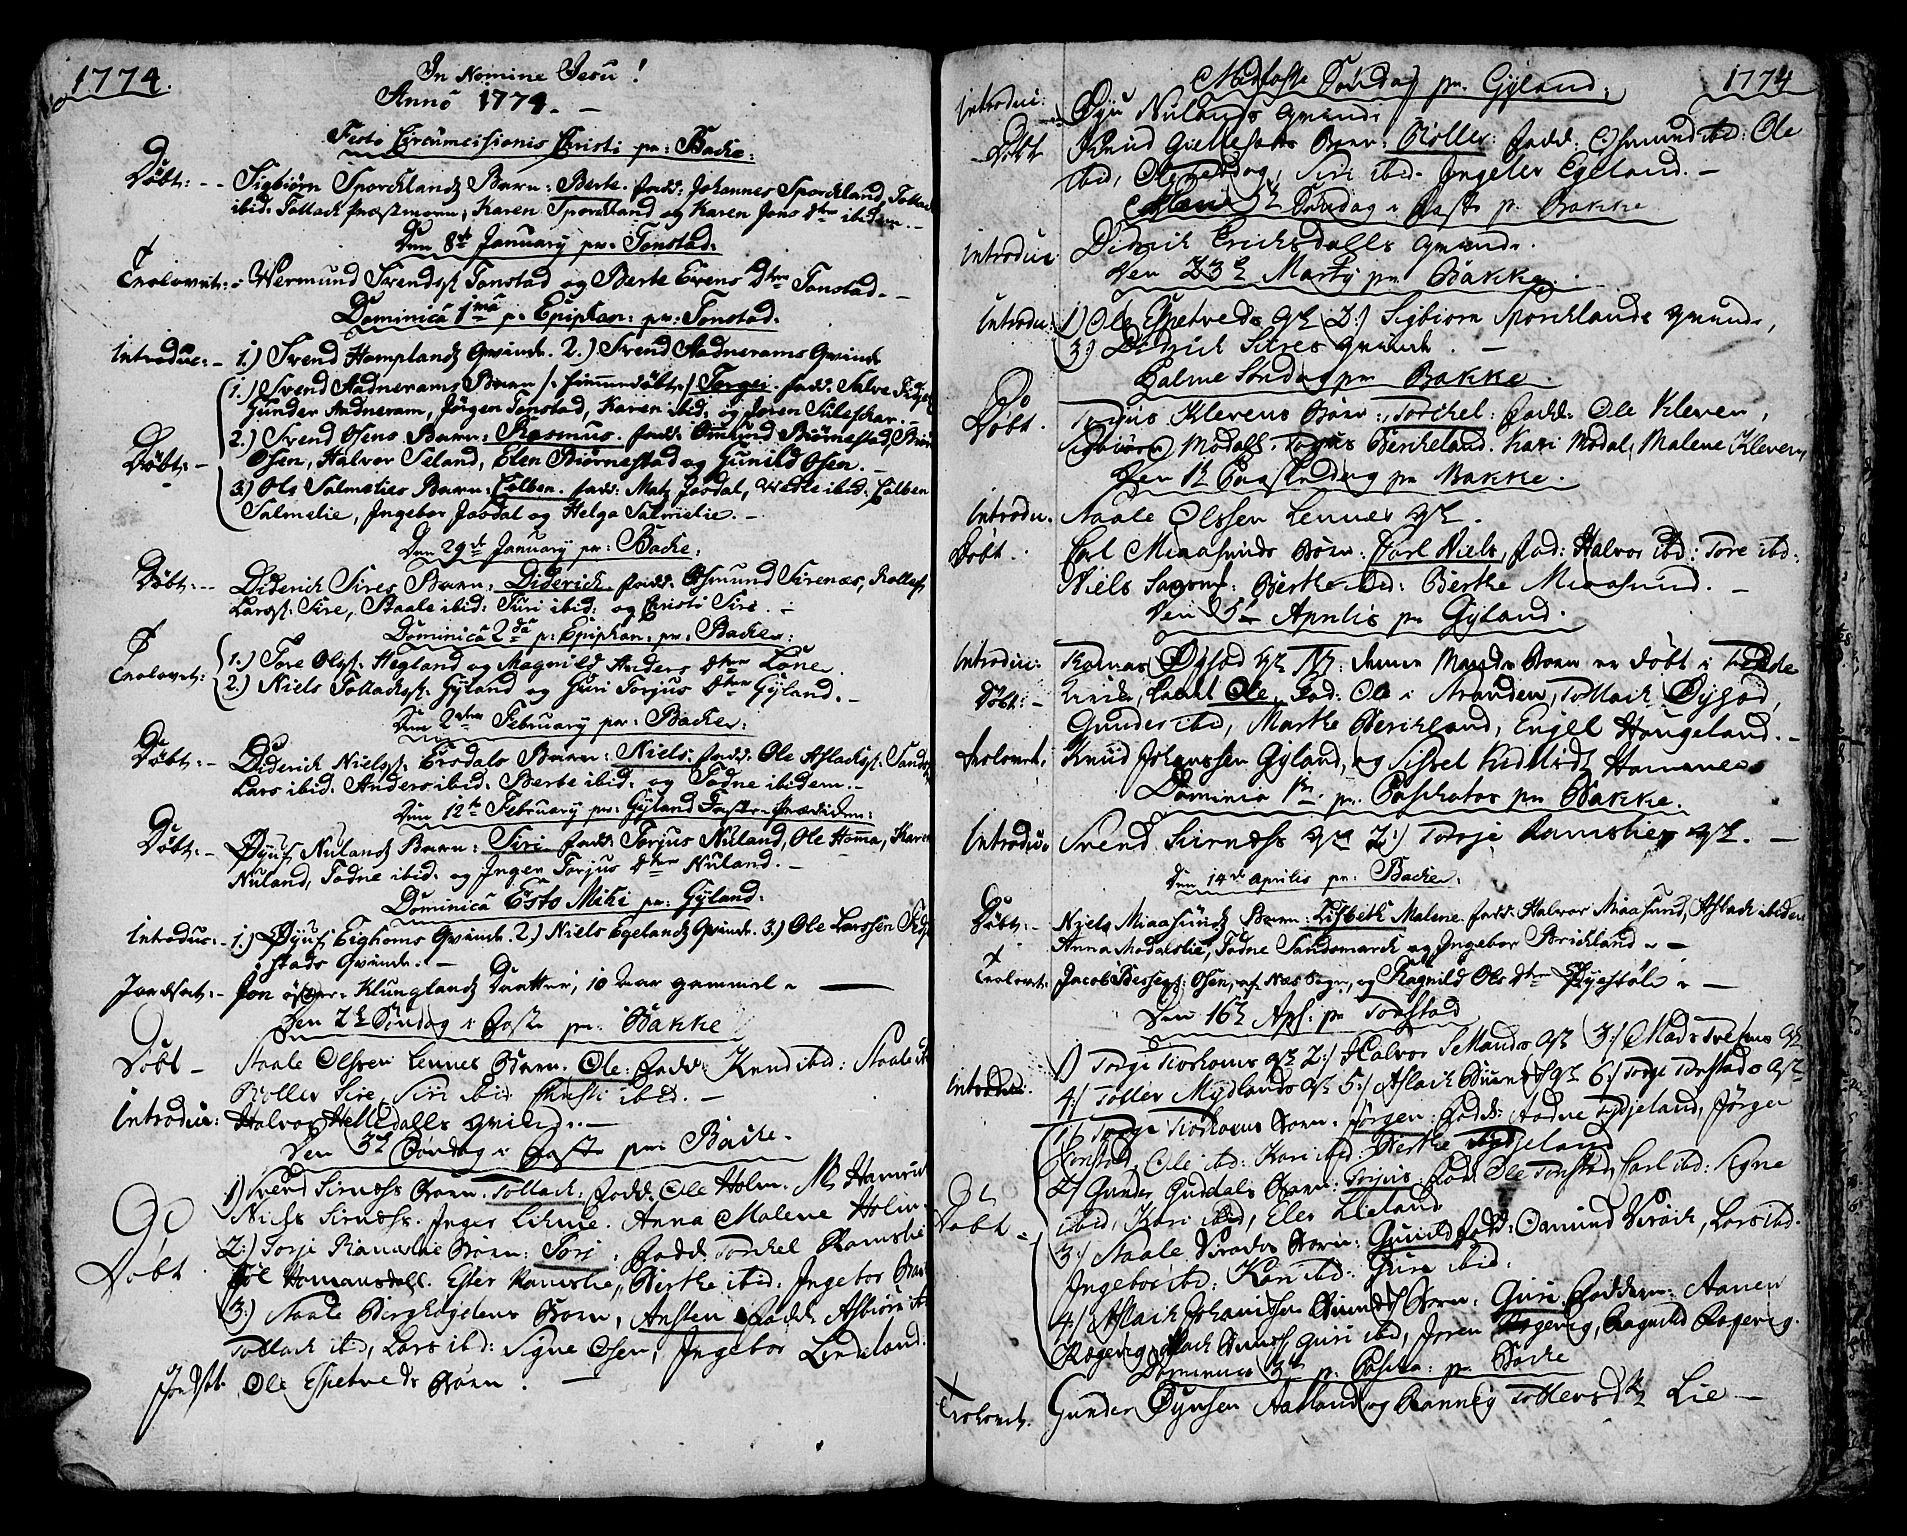 1774.
In Nomine Jesu!
Anno 1774. –
Festo Circumcisionis Christi pr: Backe:
Døbt: -- Sigbiørn Sporcklandz Barn: Berte. fadd: Johannes Sporckland, Tollac
ibid: Tollack Præstmoen, Karen Sporckland og Karen Jons Dtter ibidem. –
Den 8de January pr: Tonstad:
Trolovet: - Wermund Svends: Tonstad og Berte Evens Dtter Tonstad. –
Dominica 1ma p: Epiphan: pr: Tonstad.
Introduc: - 1.) Svend Homplandz Qvinde. 2.) Svend Aadnerams Qvinde
1.) Svend Aadnerams Barn /: hiemmedøbt :/ Torgei. fadd: Salve
Gunder Aadneram, Jørgen Tonstad, Karen ibid: og Joren Suleskar. –
Døbt: - 2.) Svend Osens Barn: Rasmus. fadd: Omund Biørnestad,
Osen, Halvor Seland, Elen Biørnestad og Gunild Osen. –
3.) Ole Salmelies Barn: Tolben. fadd: Matz Josdal, ibid: Tolben
Salmelie, Ingebor Josdal og Helga Salmelie. –
Den 29de January pr: Backe:
Døbt: -- Diderich Sires Barn: Diderich. fadd: Osmund Sirenæs, Rollef
Lars: Sire, Staale ibid: Siri ibid: og Christi Sire. –
Dominica 2da p: Epiphan: pr: Backe:
Trolovet: 1.) Tore Ols: Hegland og Magnild Anders Dtter Lone.
2.) Niels Tollacks: Gyland og Guri Torjus Dtter Gyland. –
Den 2den February pr: Backe:
Døbt: - Diderich Niels: Ersdals Barn: Niels. fadd: Ole Aslacks:
Lars ibid: Anders ibid: Berte ibid: og Todne ibidem. –
Den 12te February pr: Gyland Faste-Prædiken:
Døbt: - Øyuf Nulandz Barn: Siri. fadd: Torjus Nuland, Ole Homma, Karen
Nuland, Todne ibid: og Inger Torjus Dtter Nuland. –
Dominica Esto Mihi pr: Gyland.
Introduc: - 1.) Øyuf Eighoms Qvinde. 2.) Niels Egelandz Qvinde. 3.) Ole Larssen
stads Qvinde. –
Jordsat: - Jon Klunglandz Daatter, 10 Aar gammel –
Den 2den Søndag i Faste pr: Bakke
Døbt – Staale Olssen Lennes Barn: Ole. fadd: Knud ibid: Staale
Roller Sire, Siri ibid Christi ibid. –
Introduc: Halvor Helledalls Qvinde. –
Den 3de Søndag i Faste pr: Backe.
1) Svend Sirness Barn: Tollach: fadd. Ole Holm.
Niels Sirness. Inger Lihme. Anna Malene Holm
Døbt. 2:) Torje Ramslie Barn: Tori. fadd Torckel Ramslie
Homansdall. Ester Ramslie, Birthe ibid: Ingebor
3:) Staale Birghogelens Barn, Ansten fadd: Asbiørn
Tollach ibid, Lars ibd: Signe Osen, Ingebor Lindeland.
Jordsat. Ole Espetveds Barn. –
1774
Midfaste Søndag pr. Gyland:
Introduc: Øyu Nulands Qvinde
Døbt Knud Barn: Roller: fadd: Osmund ibd: Ole
ibid, Siri ibd. Ingeler Egeland. –
5te Søndag i Faste p. Bakke
Introduc Didrich Erichsdalls Qvinde.
Den 23de Marty pr. Bakke.
Introdu: 1) Ole Espetveds 2:) Sigbiørn Sporcklands Qvinde,
3:) Didrich Sires Qvinde. –
Palme Søndag pr Bakke.
Døbt. Torjus Klevens Barn: Torckel: fadd: Ole Kleven,
Sigbiørn Modall, Torjus Birckeland. Kari Modal, Malene Kleven,
Den 1te Paaskedag pr Bakke.
Introdu. Staale Olssen Lennes
Døbt. Carl Miaasunds Barn: Carl Niels, fad: Halvor ibd: Tore ibd.
Niels Berthe ibd: Berthe Miaasund. –
Den 5te Aprilis pr Gyland.
Introduc: Øysød denne Mands Barn er døbt i
Døbt: - Kircke, kaldt Ole, fad: Ole i Stranden, Tollach Øysød,
Gunder ibd, Marthe Birckland, Engel Haugeland. –
Trolovet, Knud Johanssen Gyland, og Sissel Hammer
Dominica 1ma pr. Paschatos pr Bakke.
Introdu. Svend Sirness 2:) Torje Ramslies –
Den 14de Aprilis pr: Backe.
Døbt: - Niels Miaasundz Barn: Lisbeth Malene. fadd: Halvor Miaasund, Aslack ibidem
Anna Modalslie, Todne Sandsmarck og Ingebor Brickland –
Trolovet: Jacob Osen, af Næs Sogn, og Ragnild Ols Dtter Øyestøl –
Den 16de Apl. pr Tonstad
Introduc. 1) Torge Tiorhoms 2:) Halvor Sellands 3:) Mads
4:) Toller Mydlands 5:) Aslach 6:) Torge Tonstads
1) Torge Tiorhoms Barn. Jørgen: fadd: Aadne Tydjeland, Jørgen
Tonstad, Ole ibd: Kari ibd: Berthe Tydjeland
Døbt – 2:) Gunder Guddals Barn: Torjus. fad: Ole Tonstad, Carl ibd: Segne
ibid, Kari ibid, Eles Lieland
3:) Staale Barn: Gunild fad: Osmund Virack, Lars ibd.
Ingebor ibd: Kari ibd: Guri ibid:
4:) Aslach Johanssen Barn: Guri Fadderne: Aanen
Rogevig, Guri ibd, Joren Rogevig, Ragnild Rogevig.
Dominica 3tia p. Pascha: pr Backe
Trolovet. Gunder Øynsen Aasland, og Ranneg Tollersdtr Lie –